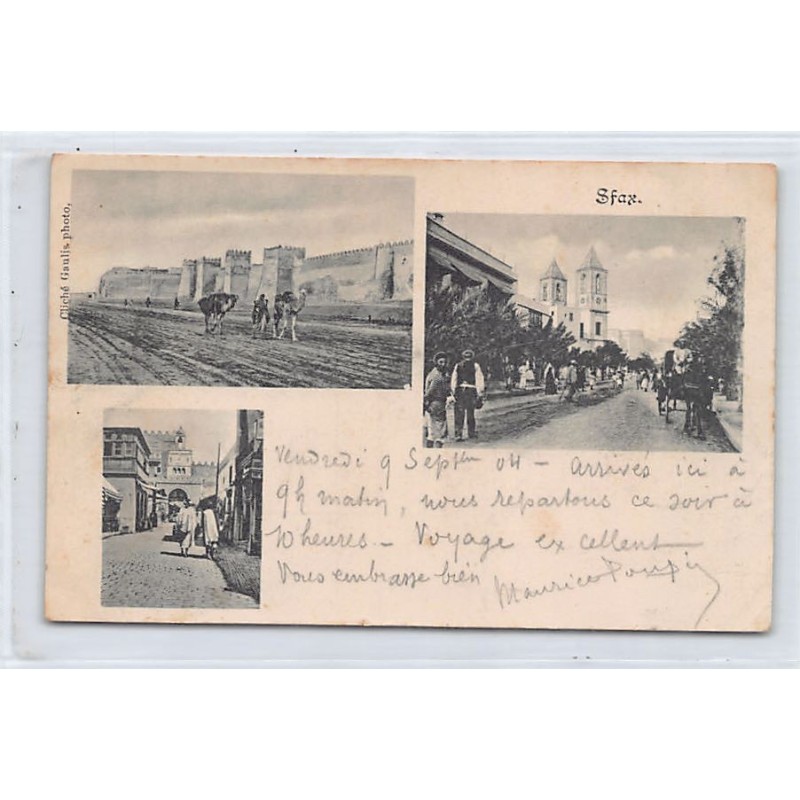 Sfax.
Cliché Gaulis, photo,
Vendredi 9 Septbre 04 – Arrivés ici à
9h matin, nous repartons ce soir à
10 heures – Voyage excellent
Vous embrasse bien
Maurice